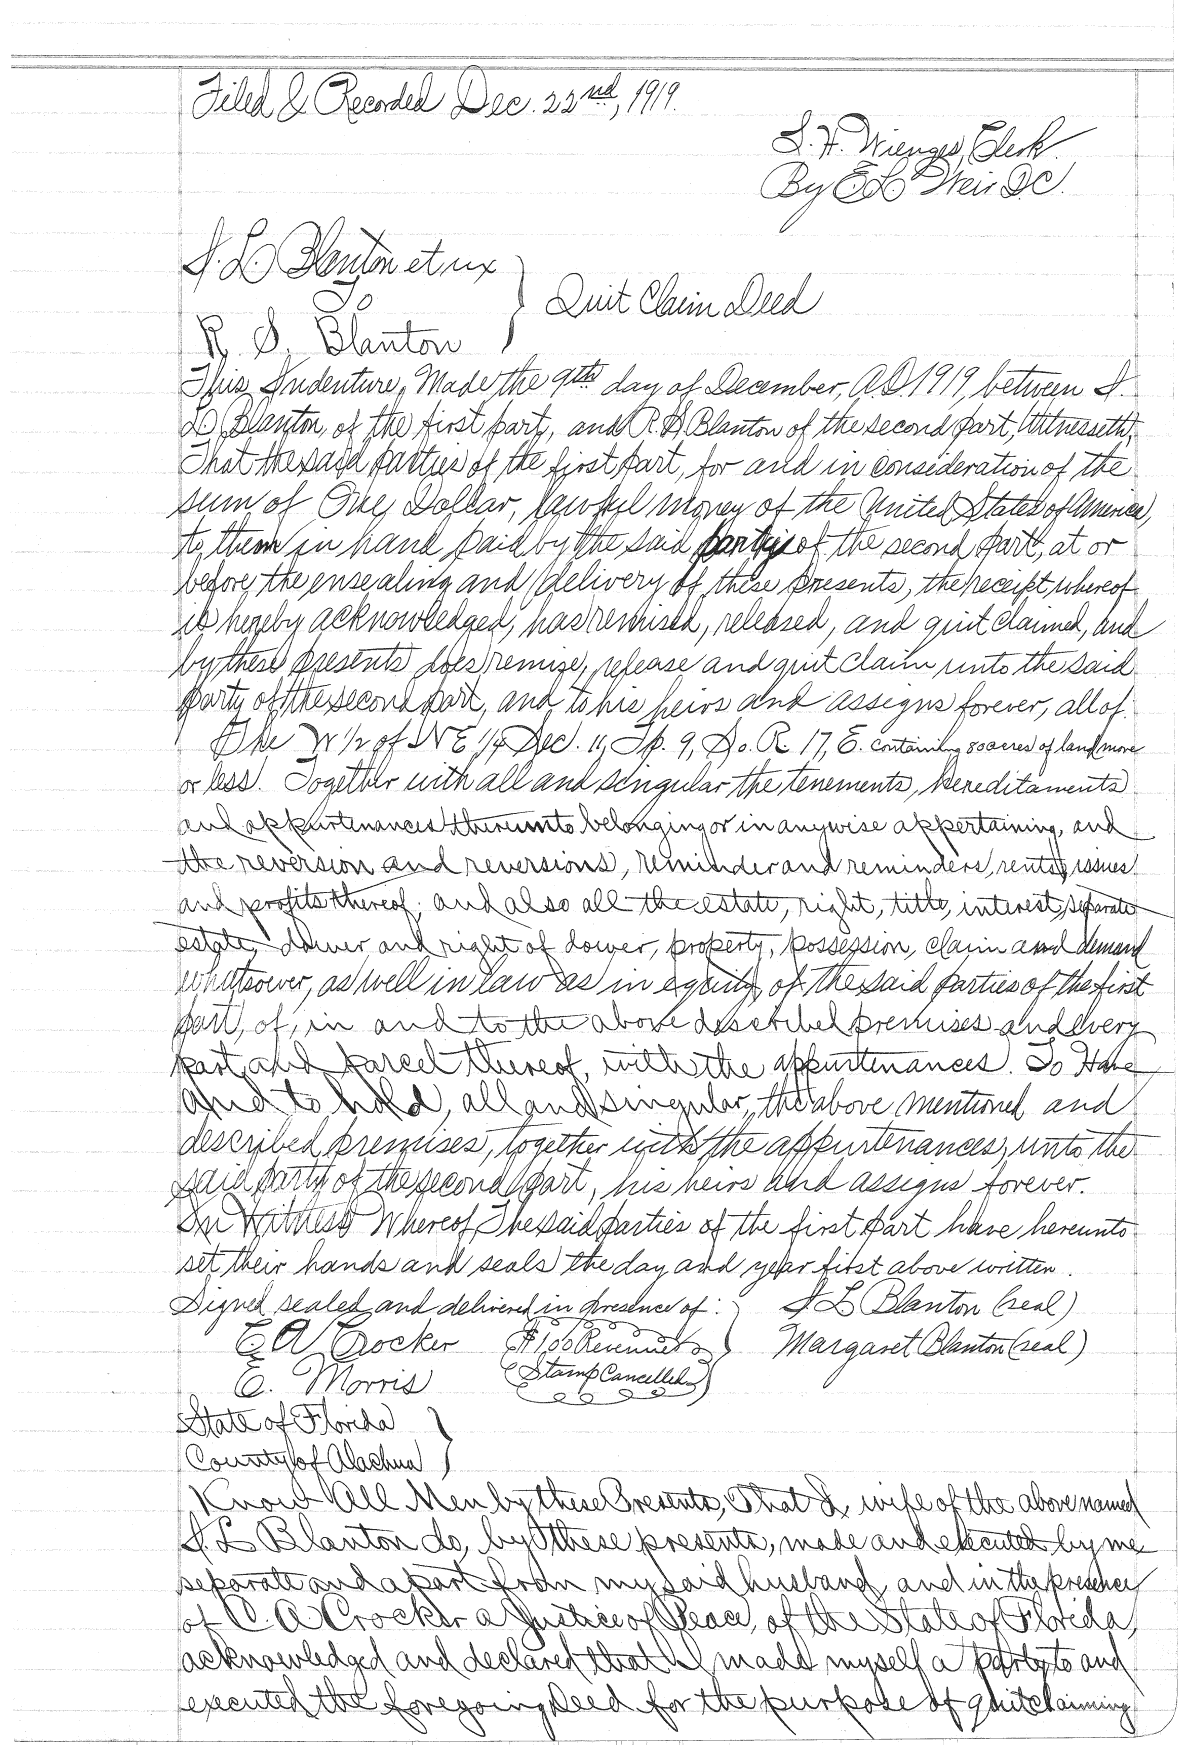 Filed & Recorded Dec. 22nd, 1919.
S. H. Wienges, Clerk.
By E L Weir D.C.
S. L. Blanton et ux
To
Quit Claim Deed
R. S. Blanton
This Indenture, Made the 9th day of December, A.D. 1919, between S.
L. Blanton, of the first part, and R. S. Blanton of the second part, Witnesseth,
That the said parties of the first part, for and in consideration of the
sum of One Dollar, lawful money of the United States of America,
to them in hand paid by the said of the second part, at or
before the ensealing and delivery of these presents, the receipt whereof
is hereby acknowledged, has remised, released, and quit claimed, and
by these presents does remise, release and quit claim unto the said
party of the second part, and to his heirs and assigns forever, all of
The W 1/2 of NE 1/4 Sec. 11, Tp. 9, So. R. 17, E. containing 80 acres of land more
or less. Together with all and singular the tenements, hereditaments
and appurtenances thereunto belonging or in anywise appertaining, and
the reversion and reversions, reminder and reminders, rents, issues
and profits thereof; and also all the estate, right, title, interest, separate
estate, dower and right of dower, property, possession, claim and demand
whatsoever, as well in law as in equity, of the said parties of the first
part, of, in and to the above described premises and every
part and parcel thereof, with the appurtenances. To Have
and to hold, all and singular, the above mentioned and
described premises, together with the appurtenances, unto the
said party of the second part, his heirs and assigns forever.
In Witness Whereof, The said parties of the first part have hereunto
set their hands and seals the day and year first above written.
Signed sealed and delivered in presence of: S L Blanton (seal)
C A Crocker $1.00 Revenue Margaret Blanton (seal)
E. Morris Stamp Cancelled
State of Florida
County of Alachua
Know All Men by these Presents, That I, wife of the above named
S. L Blanton do, by these presents, made and executed by me
separate and apart from my said husband, and in the presence
of C. A Crocker a Justice of Peace, of the State of Florida,
acknowledged and declared that I made myself a party to and
executed the foregoing Deed for the purpose of quitclaiming